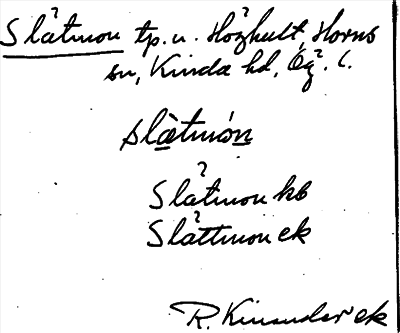 Slåtmon tp. u. Höghult, Horns
sn, Kinda hd, Ög. l.
slå̀tmón
Slåtmon kb
Slåttmon ek
R. Kinander ek